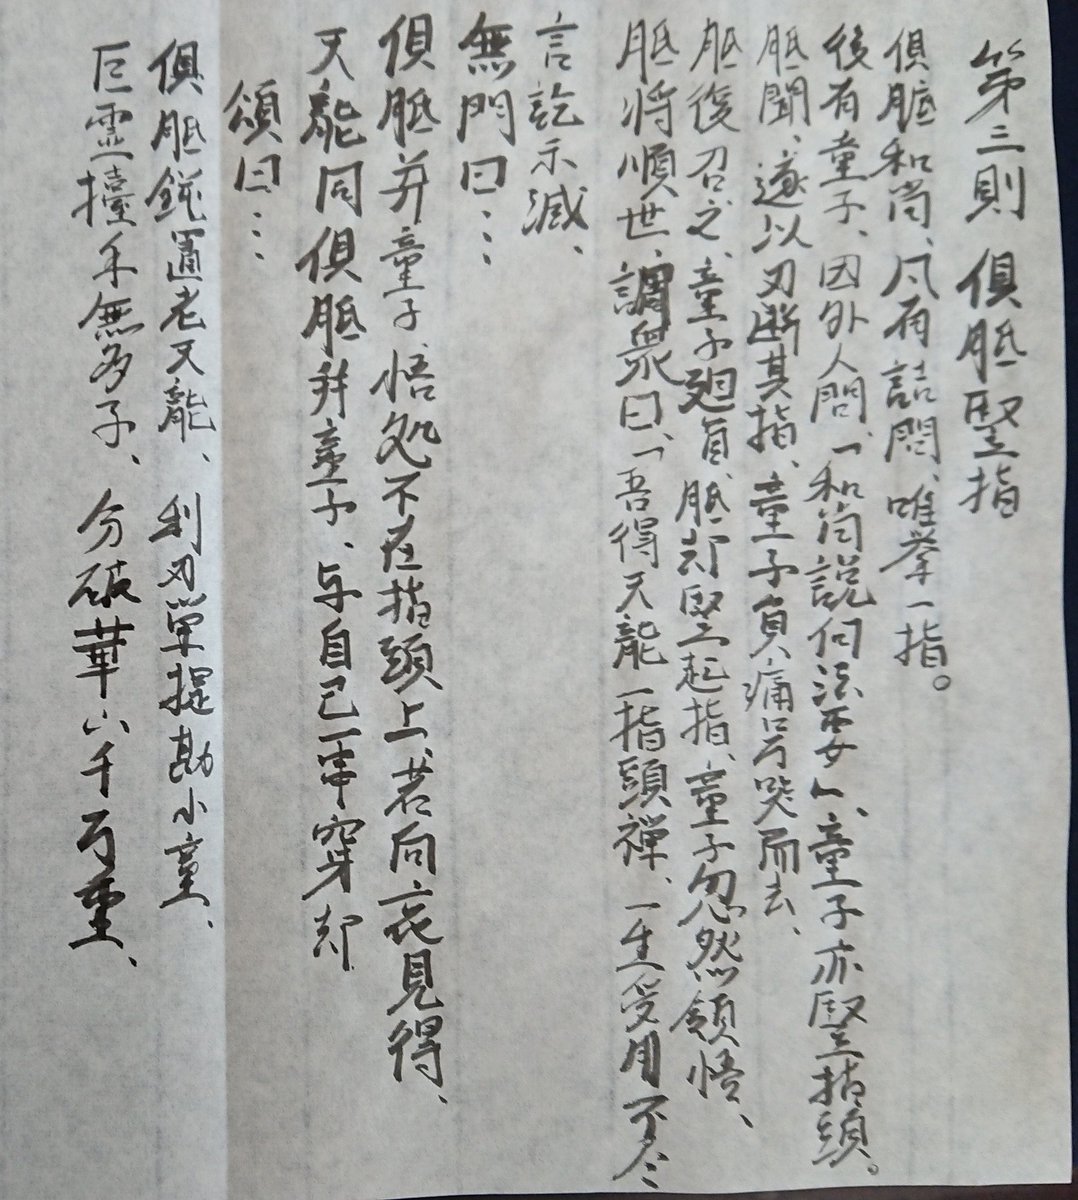 第三則 倶胝竪指
倶胝和尚、凡有詰問、唯挙一指。
後有童子、因外人問、「和尚説何法要」、童子亦竪指頭。
胝聞、遂以刃断其指、童子負痛号哭而去、
胝復召之、童子廻首、胝却竪起指、童子忽然領悟、
胝将順世、謂衆曰、「吾得天龍一指頭禅、一生受用不尽
言訖示滅、
無門曰…
倶胝并童子悟処不在指頭上、若向裏見得、
天龍同倶胝并童子、与自己一串穿却
頌曰…
倶胝鈍置老天龍、利刃単提勘小童、
巨霊擡手無多子、分破華山千万重、